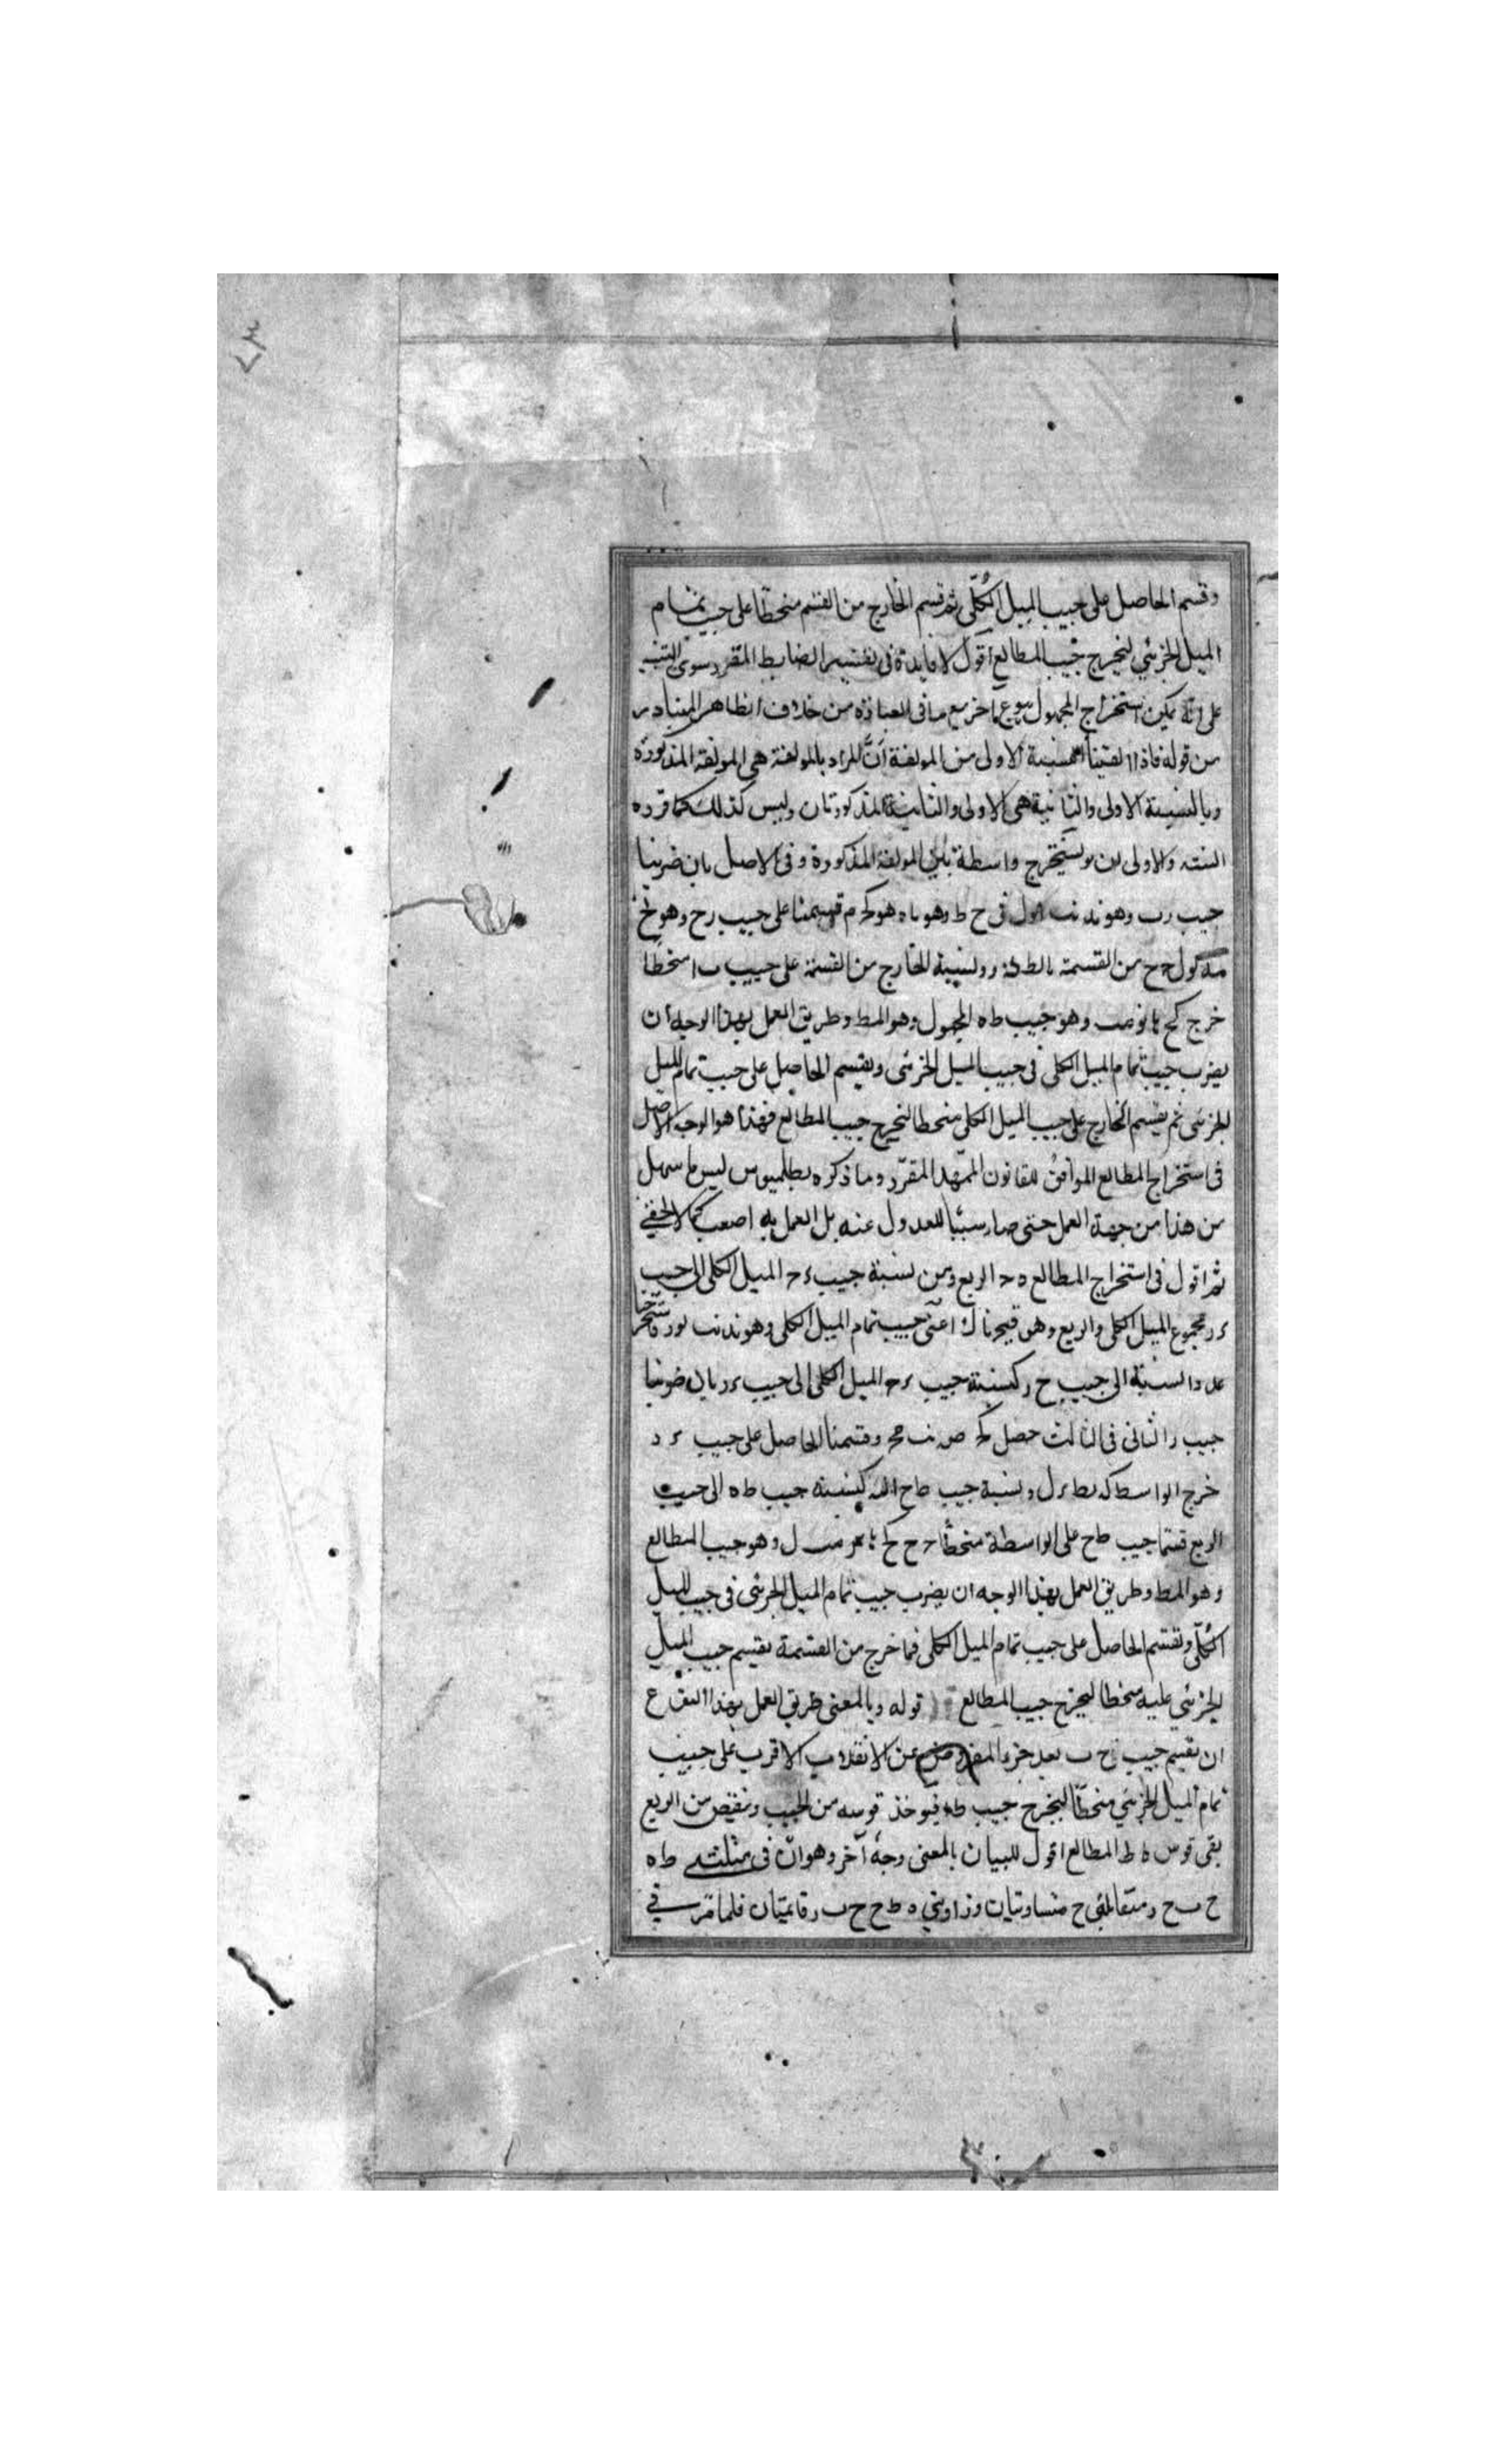 ٧٣
وقسم الحاصل على جيب الميل الكلّى ثم قسم الخارج من القسم منحطّا على جيب تمام
الميل الجزئي ليخرج جيب المطالع اقول لا فايدة فى تفسير الضابط المقرر سوى التنبيه
على انّه يمكن استخراج المجهول بنوع آخر مع ما فى العبارة من خلاف الظاهر المتبادر
من قوله فاذا القينا النسبة الاولى من المولفة انّ المراد بالمولفة هى المولفة المذكورة
وبالنسبة الاولى والثانية هى الاولى والثانية المذكورتان وليس كذلك كما قرره
البته والاولى ان يستخرج واسطة بين المولفة المذكورة وفى الاصل بان ضربنا
جيب رب وهو ند نب فى ح ط وهو قسمنا على جيب رح وهو
من القسمة ونسبة الخارج من القسمة على جيب ب ا منحطا
خرج كح وهو جيب ط ه المجهول وهو المط وطريق العمل بهذا الوجه ان
يضرب جيب تمام الميل الكلى فى جيب الميل الجزئى ويقسم الحاصل على جيب تمام الميل
الجزئى ثم يقسم الخارج على جيب الميل الكلى منحطا ليخرج جيب المطالع فهذا هو الوجه الاصل
فى استخراج المطالع الموافق للقانون الممّهد المقرّر وما ذكره بطلميوس ليس ما سهل
من هذا من جهة العمل حتى صار سببًا للعدول عنه بل العمل به اصعب كما لا يخفى
ثم اقول فى استخراج المطالع ه ح الربع ومن نسبة جيب ء ح الميل الكلى الى جيب
ء ر مجموع الميل الكلى والربع وهو اعنى جيب تمام الميل الكلى وهو ند نب
النسبة الى جيب ح ر كنسبة جيب ء ح الميل الكلى الى جيب ء ر بان ضربنا
جيب ر الثانى فى الثالث حصل وقسمنا الحاصل على جيب ء د
خرج الواسطة ونسبة جيب ط ح اليه كنسبة جيب ط ه الى جيب
الربع قسمنا جيب ط ح على الواسطة منحطّا ل وهو جيب المطالع
وهو المط وطريق العمل بهذا الوجه ان يضرب جيب تمام الميل الجزئى فى جيب الميل
الكلّى ونقسم الحاصل على جيب تمام الميل الكلى فما خرج من القسمة نقسم جيب الميل
الجزئي عليه منحطا ليخرج جيب المطالع قوله وبالمعنى طريق العمل بهذا النوع
ان نقسم جيب ح ب بعد جزء المفروض عن الانقلاب الاقرب على جيب
تمام الميل الجزئي منحطّا ليخرج جيب ط ه فيوخذ قوسه من الجيب وينقص من الربع
بقى قوس ه ط المطالع اقول للبيان بالمعنى وجهٌ آخر وهو انّ فى مثلثى ط ه
ح ب ح ر متقابلتى ح متساويتان وزاويتى ه ط ح ح ب ر قائمتان فلما مرّ فى